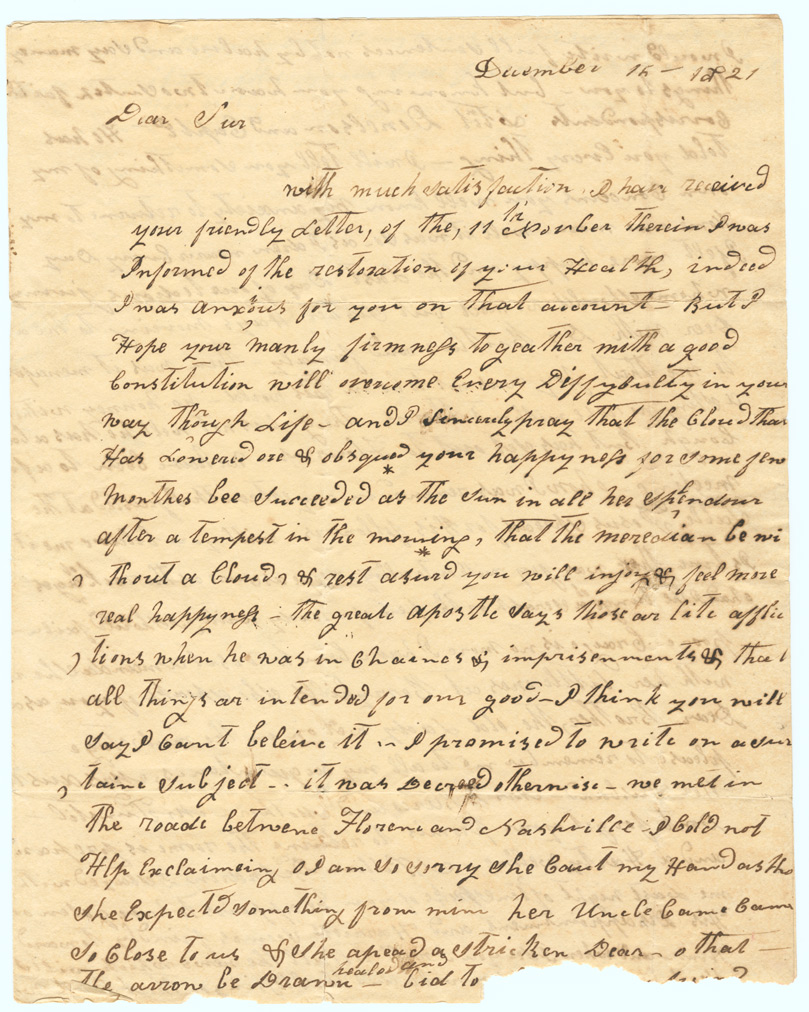 December 16 - 1821
Dear Sur
with much satisfaction I have received
your friendly Letter, of the, 11th November therein I was
Informed of the restoration of your Health, indeed
I was anxious for you on that account - But I
Hope your manly firmness togeather with a good
Constitution will overcome Every Diffyculty in your
way though Life - and I Sincerely pray that the Cloud that
Has Lowered ore & obsqued your happyness for some few
Monthes bee Succeeded as the Sun in all her Splendour
after a tempest in the morning, that the meredian be wi
, thout a Cloud, & rest asurd you will injoy & feel more
real happyness - the greate apostle says those ar lite afflic
, tions when he was in Chaines & imprisenments & that
all things ar intended for our good - I think you will
Say I Cant beleive it - I promised to write on a sur
, taine Subject - it was Decreed otherwise - we met in
the roade betwene Florence and Nashville I Cold not
Help Exclaimeing o I am So Sorry She Caut my Hand as tho
She Expectd Something from mine her Uncle Came Came
So Close to us & She apead a Stricken Dear - o that
the arrow be Drawn healed and - bid to